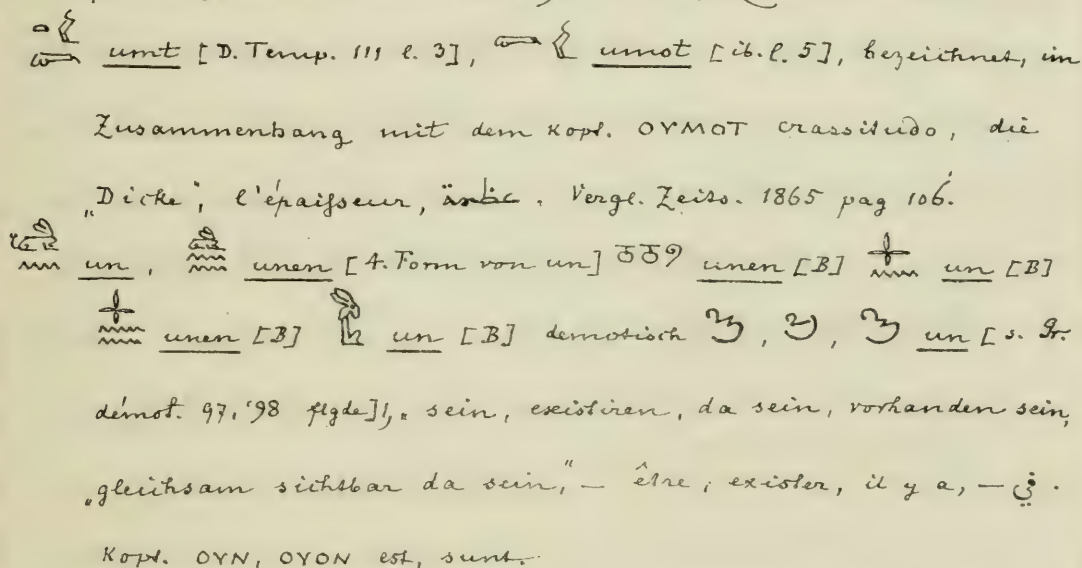 umt [D. Temp. III l. 3], umot [ib. l. 5], bezeichnet, im
Zusammenhang mit dem Kopt. ΟΥΜΟΤ crassitudo, die
„Dicke", l'épaisseur, Vergl. Zeits. 1865 pag 106.
un, unen [4. Form von un] unen [B] un [B]
unen [B] un [B] demotisch un [s. Gr.
démot. 97, 98 flgde], „sein, existiren, da sein, vorhanden sein,
„gleichsam sichtbar da sein," – être, exister, il y a, – في .
Kopt. ΟΥΝ, ΟΥΟΝ est, sunt.